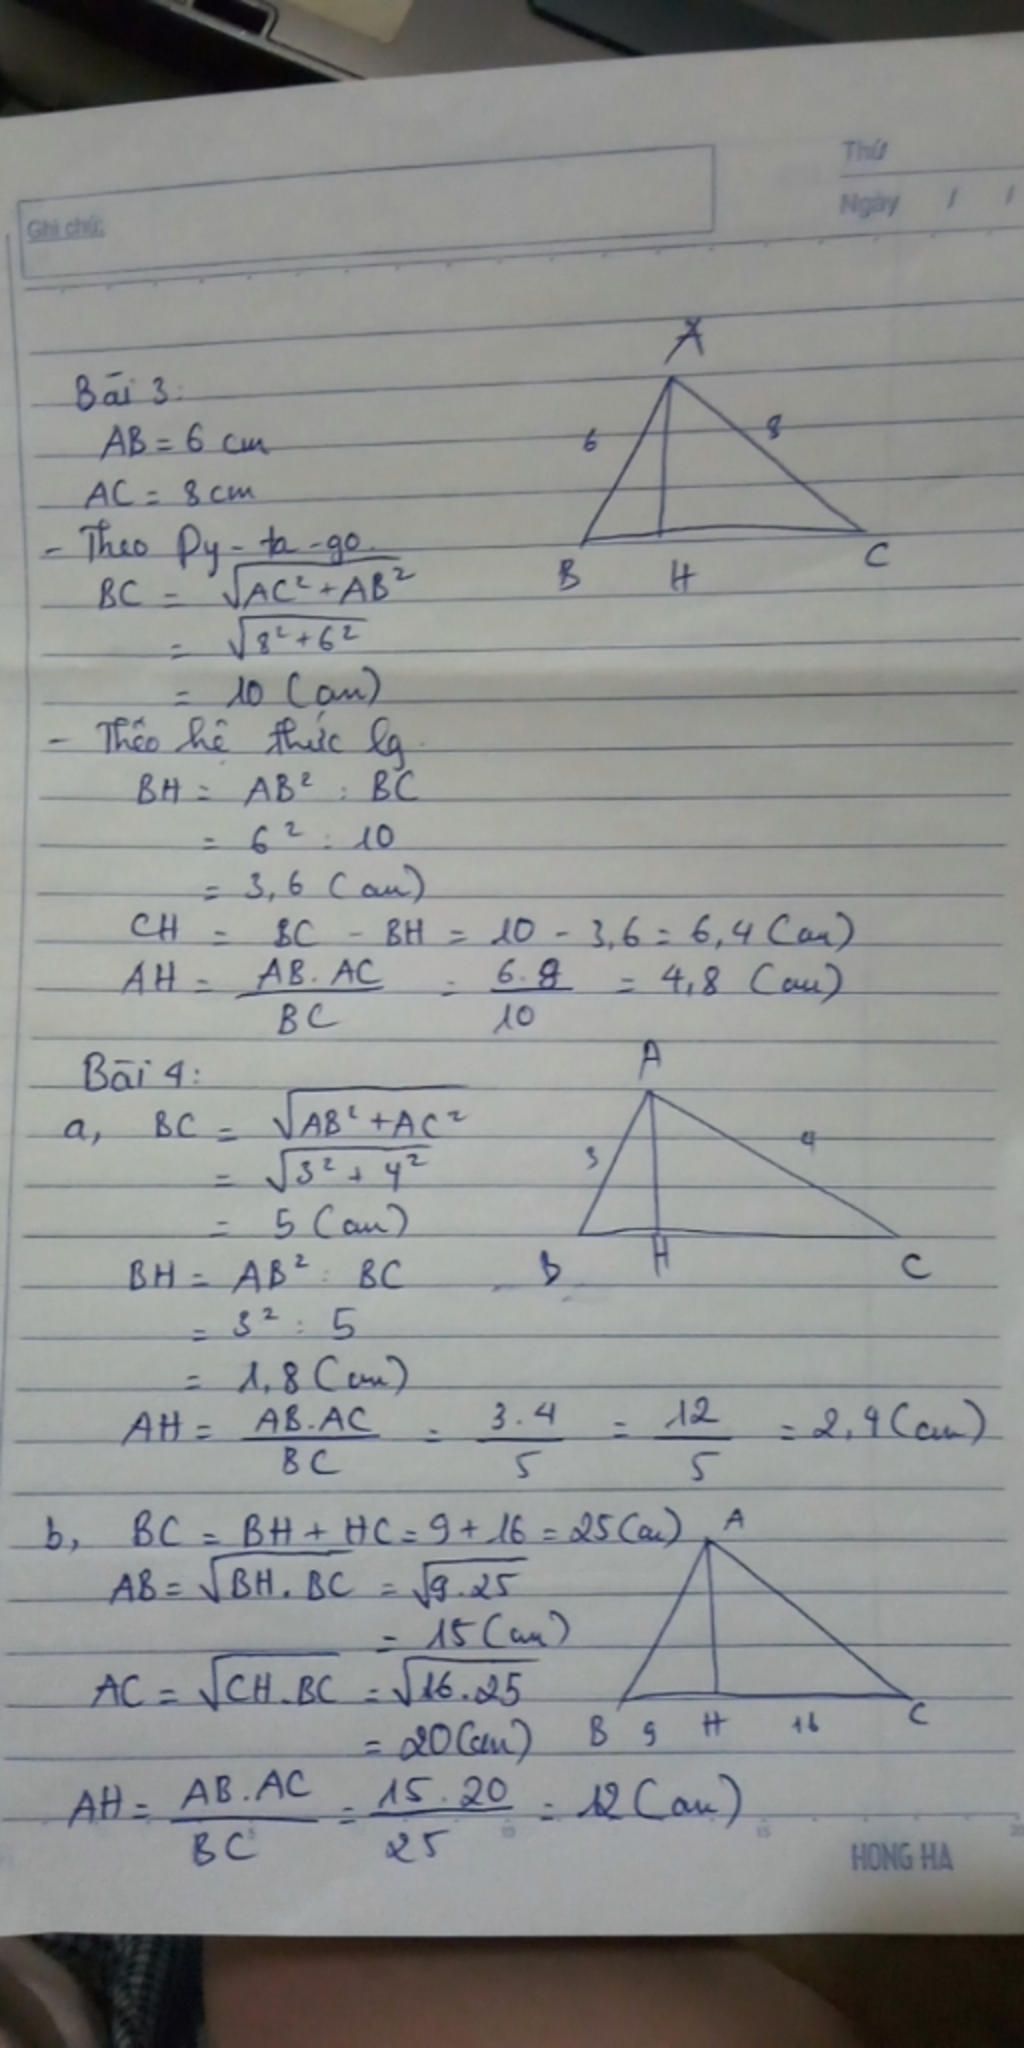 Thứ
Ghi chú:
Ngày / /
Bài 3:
AB = 6 cm
AC = 8 cm
A
6 8
B H C
- Theo Py-ta-go.
BC = √AC² + AB²
= √8² + 6²
= 10 (cm)
- Theo hệ thức lg.
BH = AB² : BC
= 6² : 10
= 3,6 (cm)
CH = BC - BH = 10 - 3,6 = 6,4 (cm)
AH = AB.AC / BC = 6.8 / 10 = 4,8 (cm)
Bài 4:
a, BC = √AB² + AC²
= √3² + 4²
= 5 (cm)
A
3 4
B H C
BH = AB² : BC
= 3² : 5
= 1,8 (cm)
AH = AB.AC / BC = 3.4 / 5 = 12 / 5 = 2,4 (cm)
b, BC = BH + HC = 9 + 16 = 25 (cm)
AB = √BH.BC = √9.25
= 15 (cm)
AC = √CH.BC = √16.25
= 20 (cm)
A
B 9 H 16 C
AH = AB.AC / BC = 15.20 / 25 = 12 (cm)
5 10 15 20
HONG HA